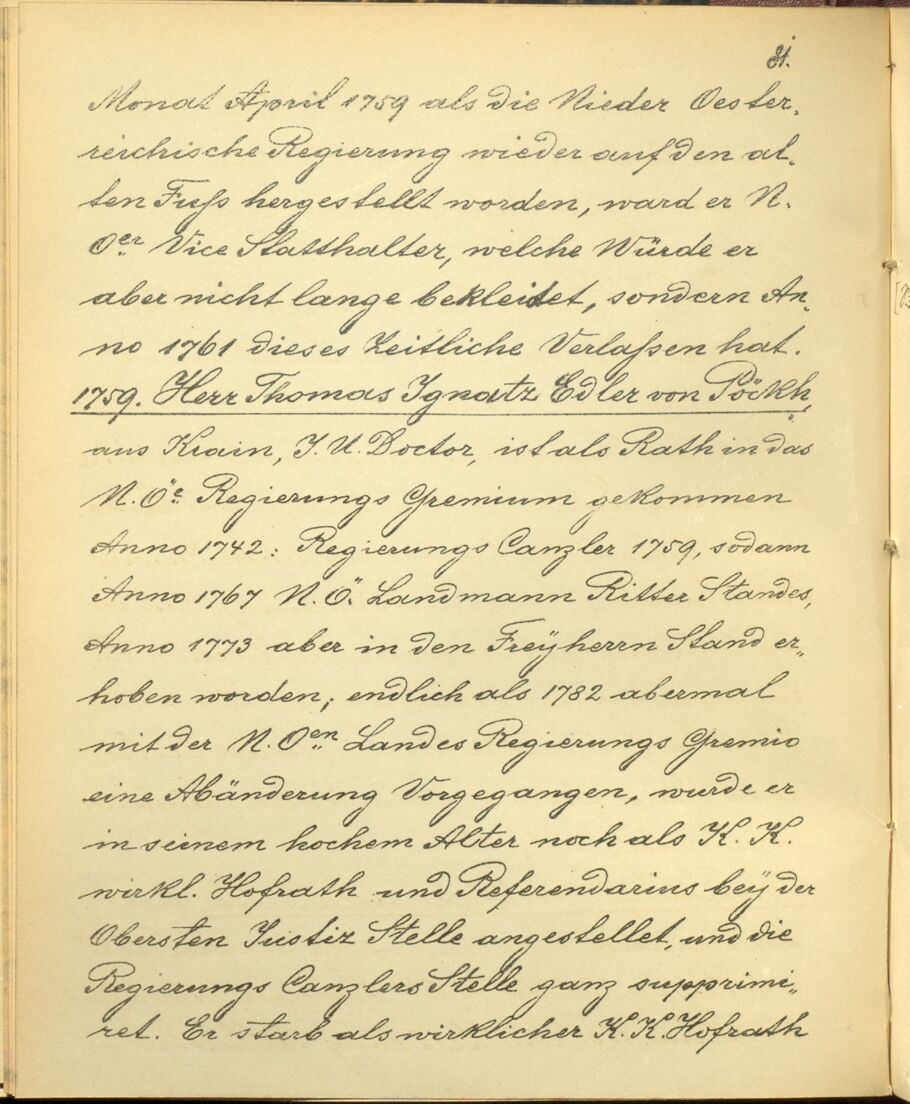 31.
Monat April 1759 als die Nieder Oester„
reichische Regierung wieder auf den al„
ten Fuſs hergestellt worden, ward er N.
Oer Vice Statthalter, welche Würde er
aber nicht lange bekleidet, sondern An„
no 1761 dieses Zeitliche Verlaſsen hat.
1759. Herr Thomas Ignatz Edler von Pöckh,
aus Krain, J. U. Doctor, ist als Rath in das
N. Öe. Regierungs Gremium gekommen
Anno 1742: Regierungs Canzler 1759, sodann
Anno 1767 N. Ö. Landmann Ritter Standes,
Anno 1773 aber in den Freÿherrn Stand er„
hoben worden; endlich als 1782 abermal
mit der N. Oen Landes Regierungs Gremio
eine Abänderung Vorgegangen, wurde er
in seinem hochem Alter noch als K. K.
wirkl. Hofrath und Referendarius beÿ der
Obersten Justiz Stelle angestellet, und die
Regierungs Canzlers Stelle ganz supprimi„
ret. Er starb als wirklicher K. K. Hofrath